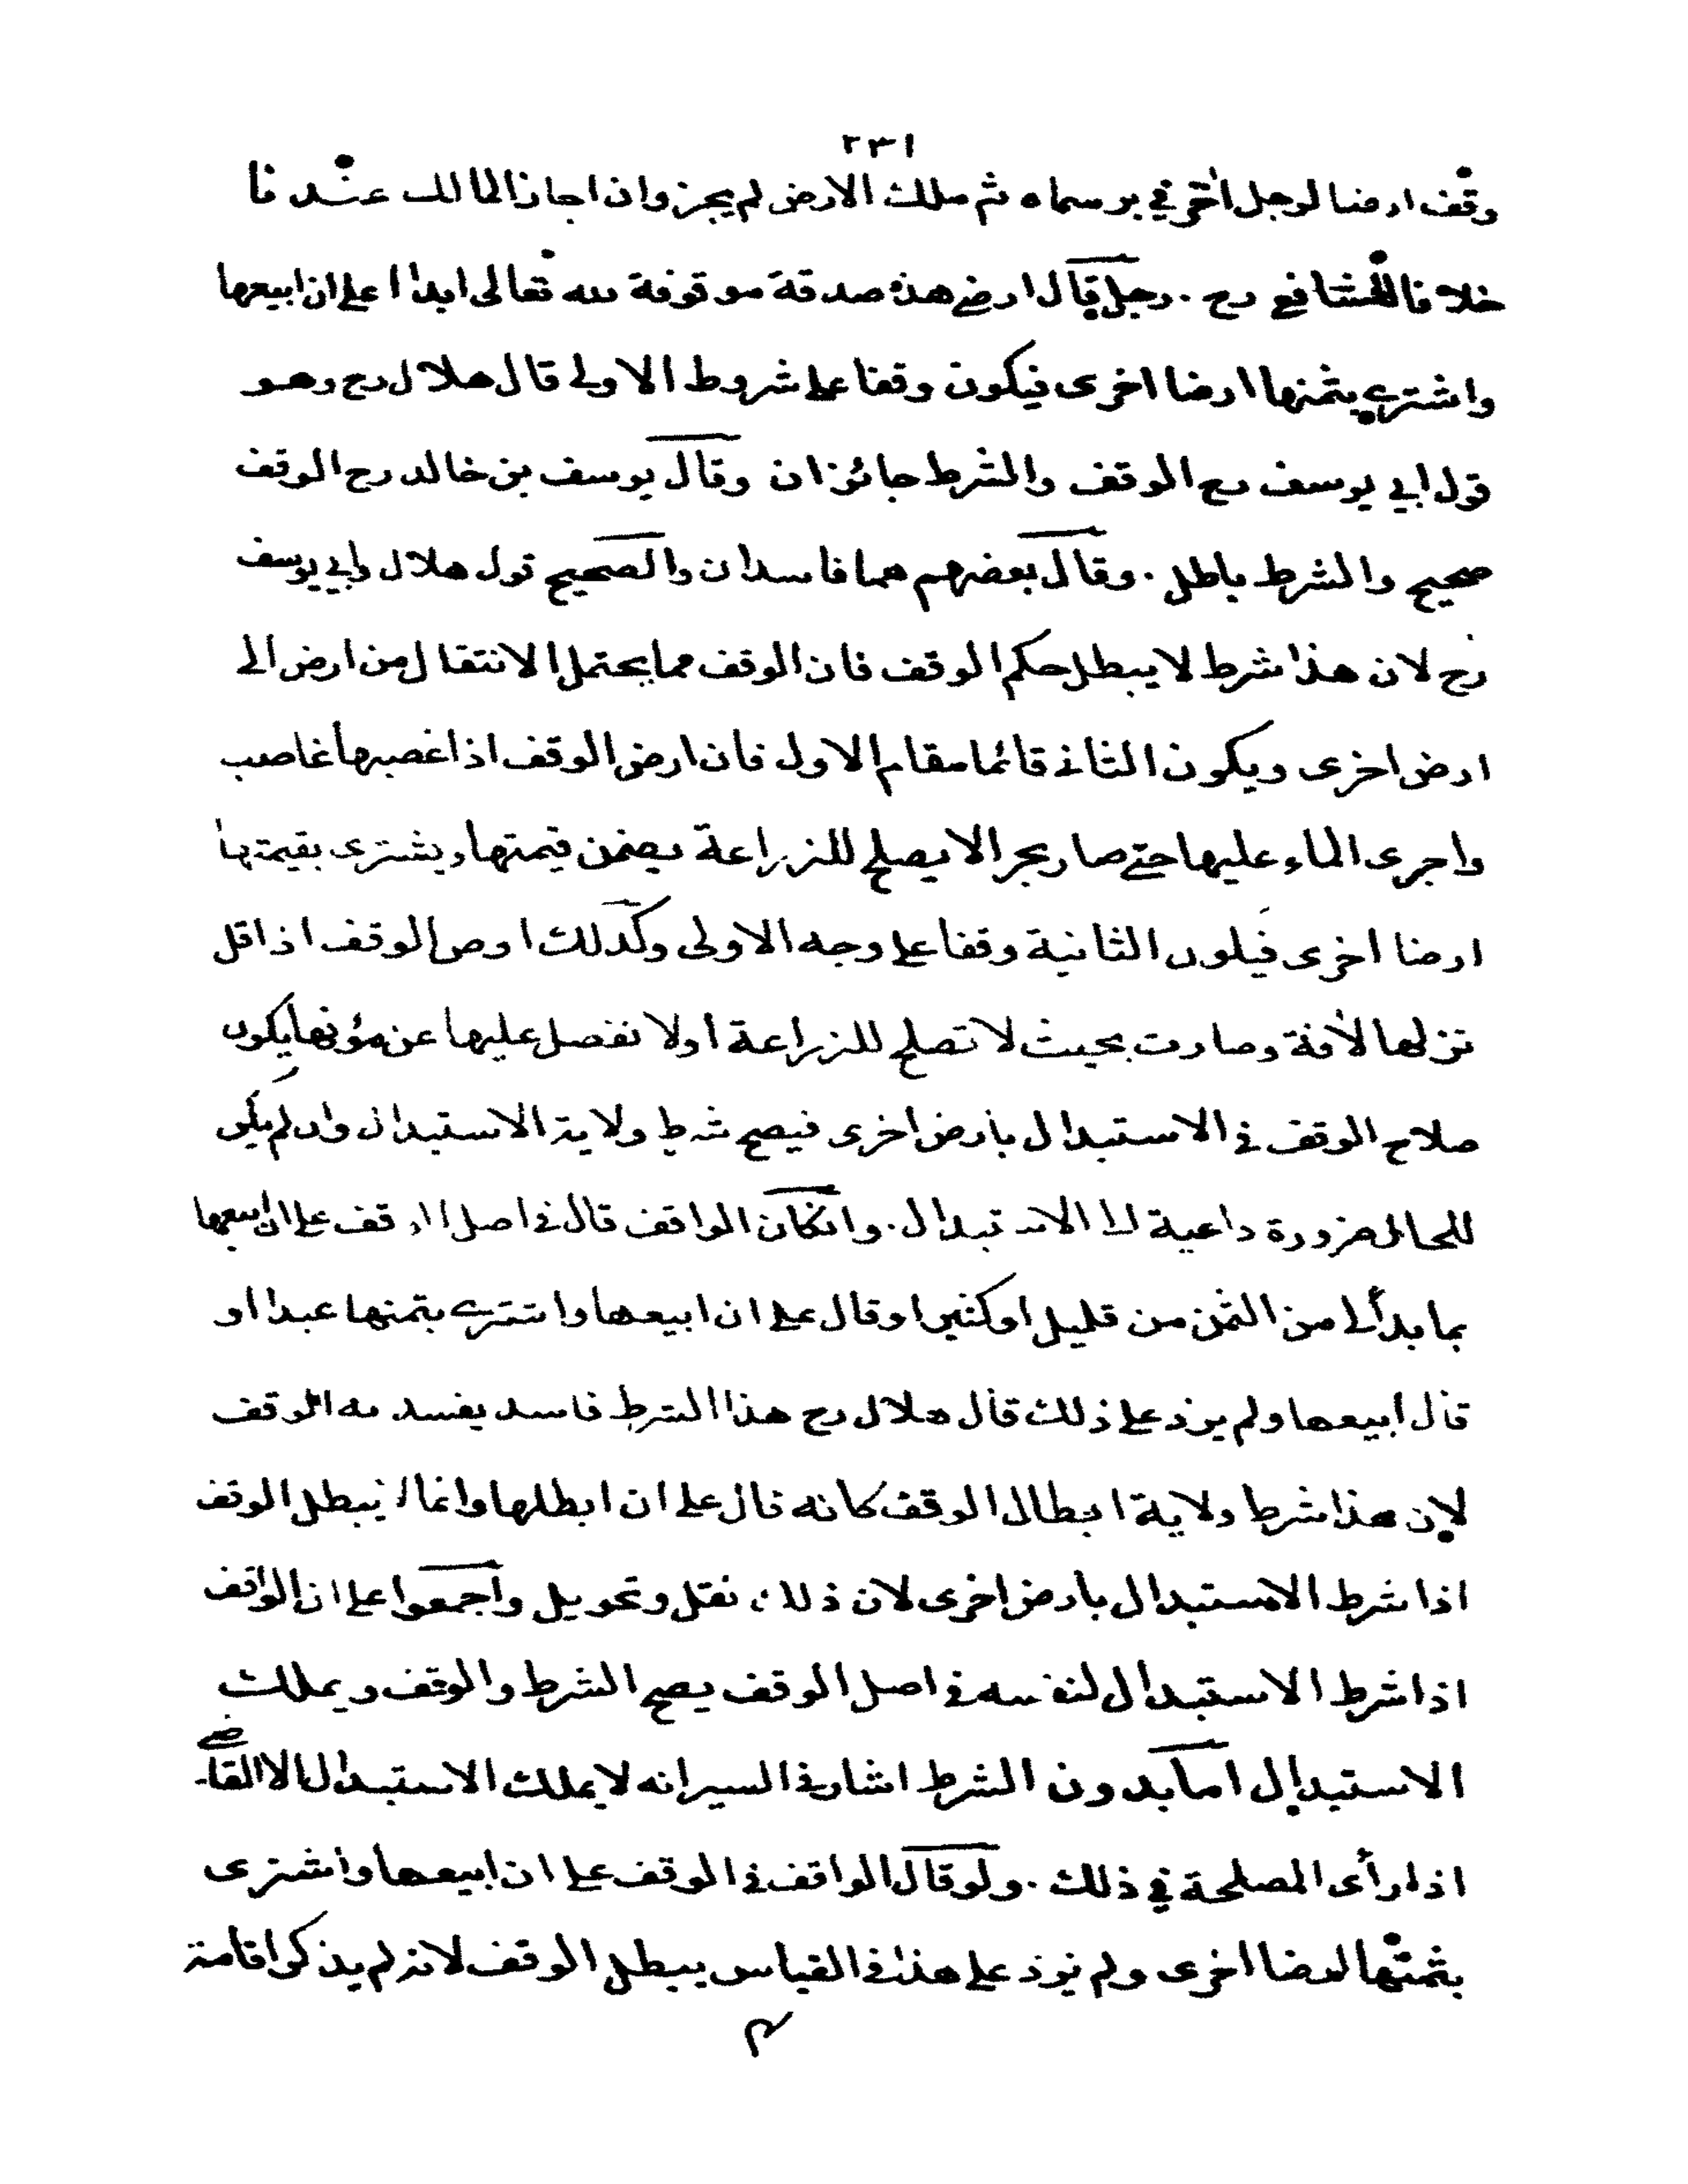 ٢٣١
وقف ارضا لرجل اخر في بر سماه ثم ملك الارض لم يجز وان اجاز المالك عندنا
خلافا للشافعي رح . رجل قال ارضي هذه صدقة موقوفة لله تعالى ابدا على ان ابيعها
واشتري بثمنها ارضا اخرى فيكون وقفا على شروط الاولى قال هلال رح وهو
قول ابي يوسف رح الوقف والشرط جائزان وقال يوسف بن خالد رح الوقف
صحيح والشرط باطل . وقال بعضهم هما فاسدان والصحيح قول هلال وابي يوسف
رح لان هذا شرط لا يبطل حكم الوقف فان الوقف مما يحتمل الانتقال من ارض الى
ارض اخرى ويكون الثاني قائما مقام الاول فان ارض الوقف اذا غصبها غاصب
واجرى الماء عليها حتى صار بحرا لا يصلح للزراعة يضمن قيمتها ويشترى بقيمتها
ارضا اخرى فيكون الثانية وقفا على وجه الاولى وكذلك ارض الوقف اذا قل
نزلها لآفة وصارت بحيث لا تصلح للزراعة او لا تفضل عليها عن مؤنها يكون
صلاح الوقف في الاستبدال بارض اخرى فيصح شرط ولاية الاستبدال وان لم يكن
للحال ضرورة داعية الى الاستبدال . وان كان الواقف قال في اصل الوقف على ان ابيعها
بما بدألي من الثمن من قليل او كثير او قال على ان ابيعها واشتري بثمنها عبدا او
قال ابيعها ولم يزد على ذلك قال هلال رح هذا الشرط فاسد يفسد به الوقف
لان هذا شرط ولاية ابطال الوقف كانه قال على ان ابطلها وانما لا يبطل الوقف
اذا شرط الاستبدال بارض اخرى لان ذلك نقل وتحويل واجمعوا على ان الواقف
اذا شرط الاستبدال لنفسه في اصل الوقف يصح الشرط والوقف ويملك
الاستبدال اما بدون الشرط اشار في السير انه لا يملك الاستبدال الا القاضي
اذا رأى المصلحة في ذلك . ولو قال الواقف في الوقف على ان ابيعها واشترى
بثمنها ارضا اخرى ولم يزد على هذا في القياس يبطل الوقف لانه لم يذكر اقامة